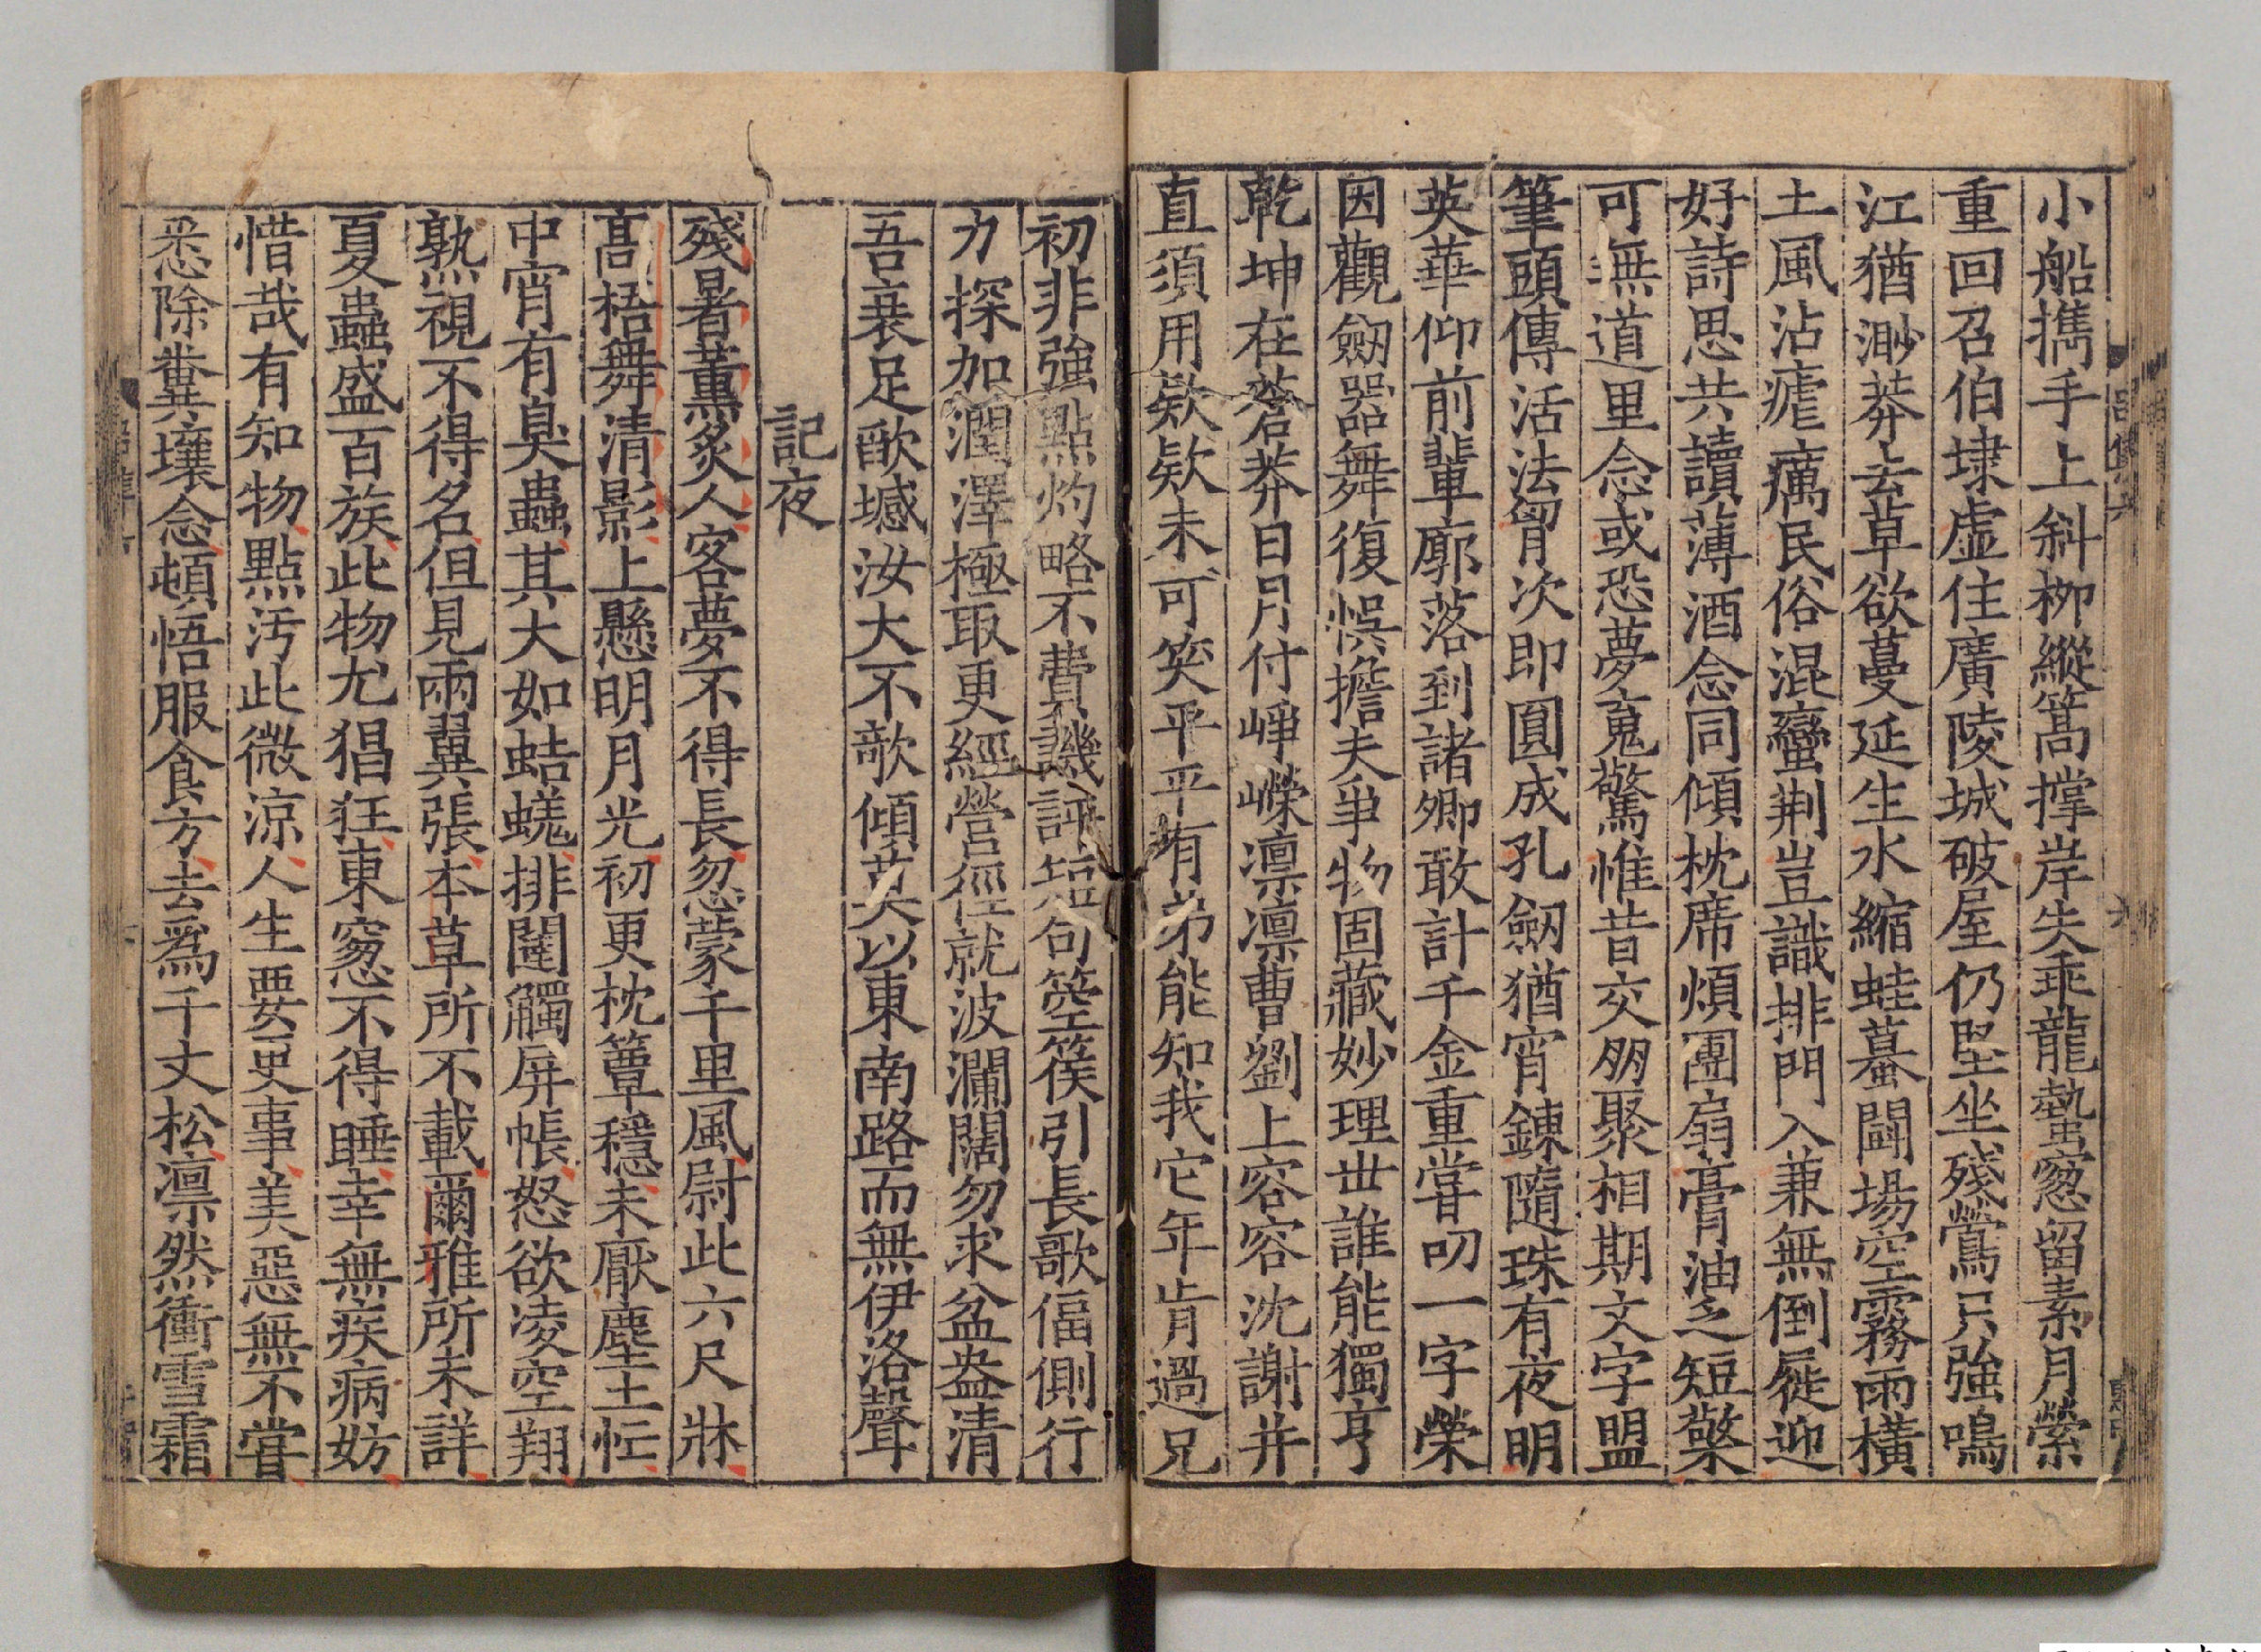 小船攜手上斜柳縱篙撐岸失乖龍蟄窓留素月縈
重回召伯埭虛住廣陵城破屋仍堅坐殘鶯只強鳴
江猶渺莽去草欲蔓延生水縮蛙蟇鬪場空霧雨橫
土風沾瘧癘民俗混蠻荆豈識排門入兼無倒屣迎
好詩思共讀薄酒念同傾枕席煩團扇膏油乏短檠
可無道里念或恐夢䰟驚惟昔交朋聚相期文字盟
筆頭傳活法胷次即圓成孔劒猶宵鍊隨珠有夜明
英華仰前輩廓落到諸卿敢計千金重嘗叨一字榮
因觀劒器舞復悞擔夫爭物固藏妙理世誰能獨亨
乾坤在蒼莽日月付崢嶸凛凛曹劉上容容沈謝并
直須用欵欵未可笑平平有弟能知我它年肯過兄
初非強點灼略不費譏評短句箜篌引長歌偪側行
力探加潤澤極取更經營徑就波瀾闊勿求盆盎清
吾衰足歊墟汝大不欹傾莫以東南路而無伊洛聲
記夜
殘暑薰炙人客夢不得長忽蒙千里風尉此六尺牀
髙梧舞清影上懸明月光初更枕簟穩未厭塵土忙
中宵有臭蟲其大如蛣蜣排闥觸屏帳怒欲凌空翔
熟視不得名但見兩翼張本草所不載爾雅所未詳
夏蟲盛百族此物尤猖狂東窓不得睡幸無疾病妨
惜哉有知物點汚此微涼人生要更事美惡無不嘗
悉除糞壤念頓悟服食方去爲千丈松凛然衝雪霜